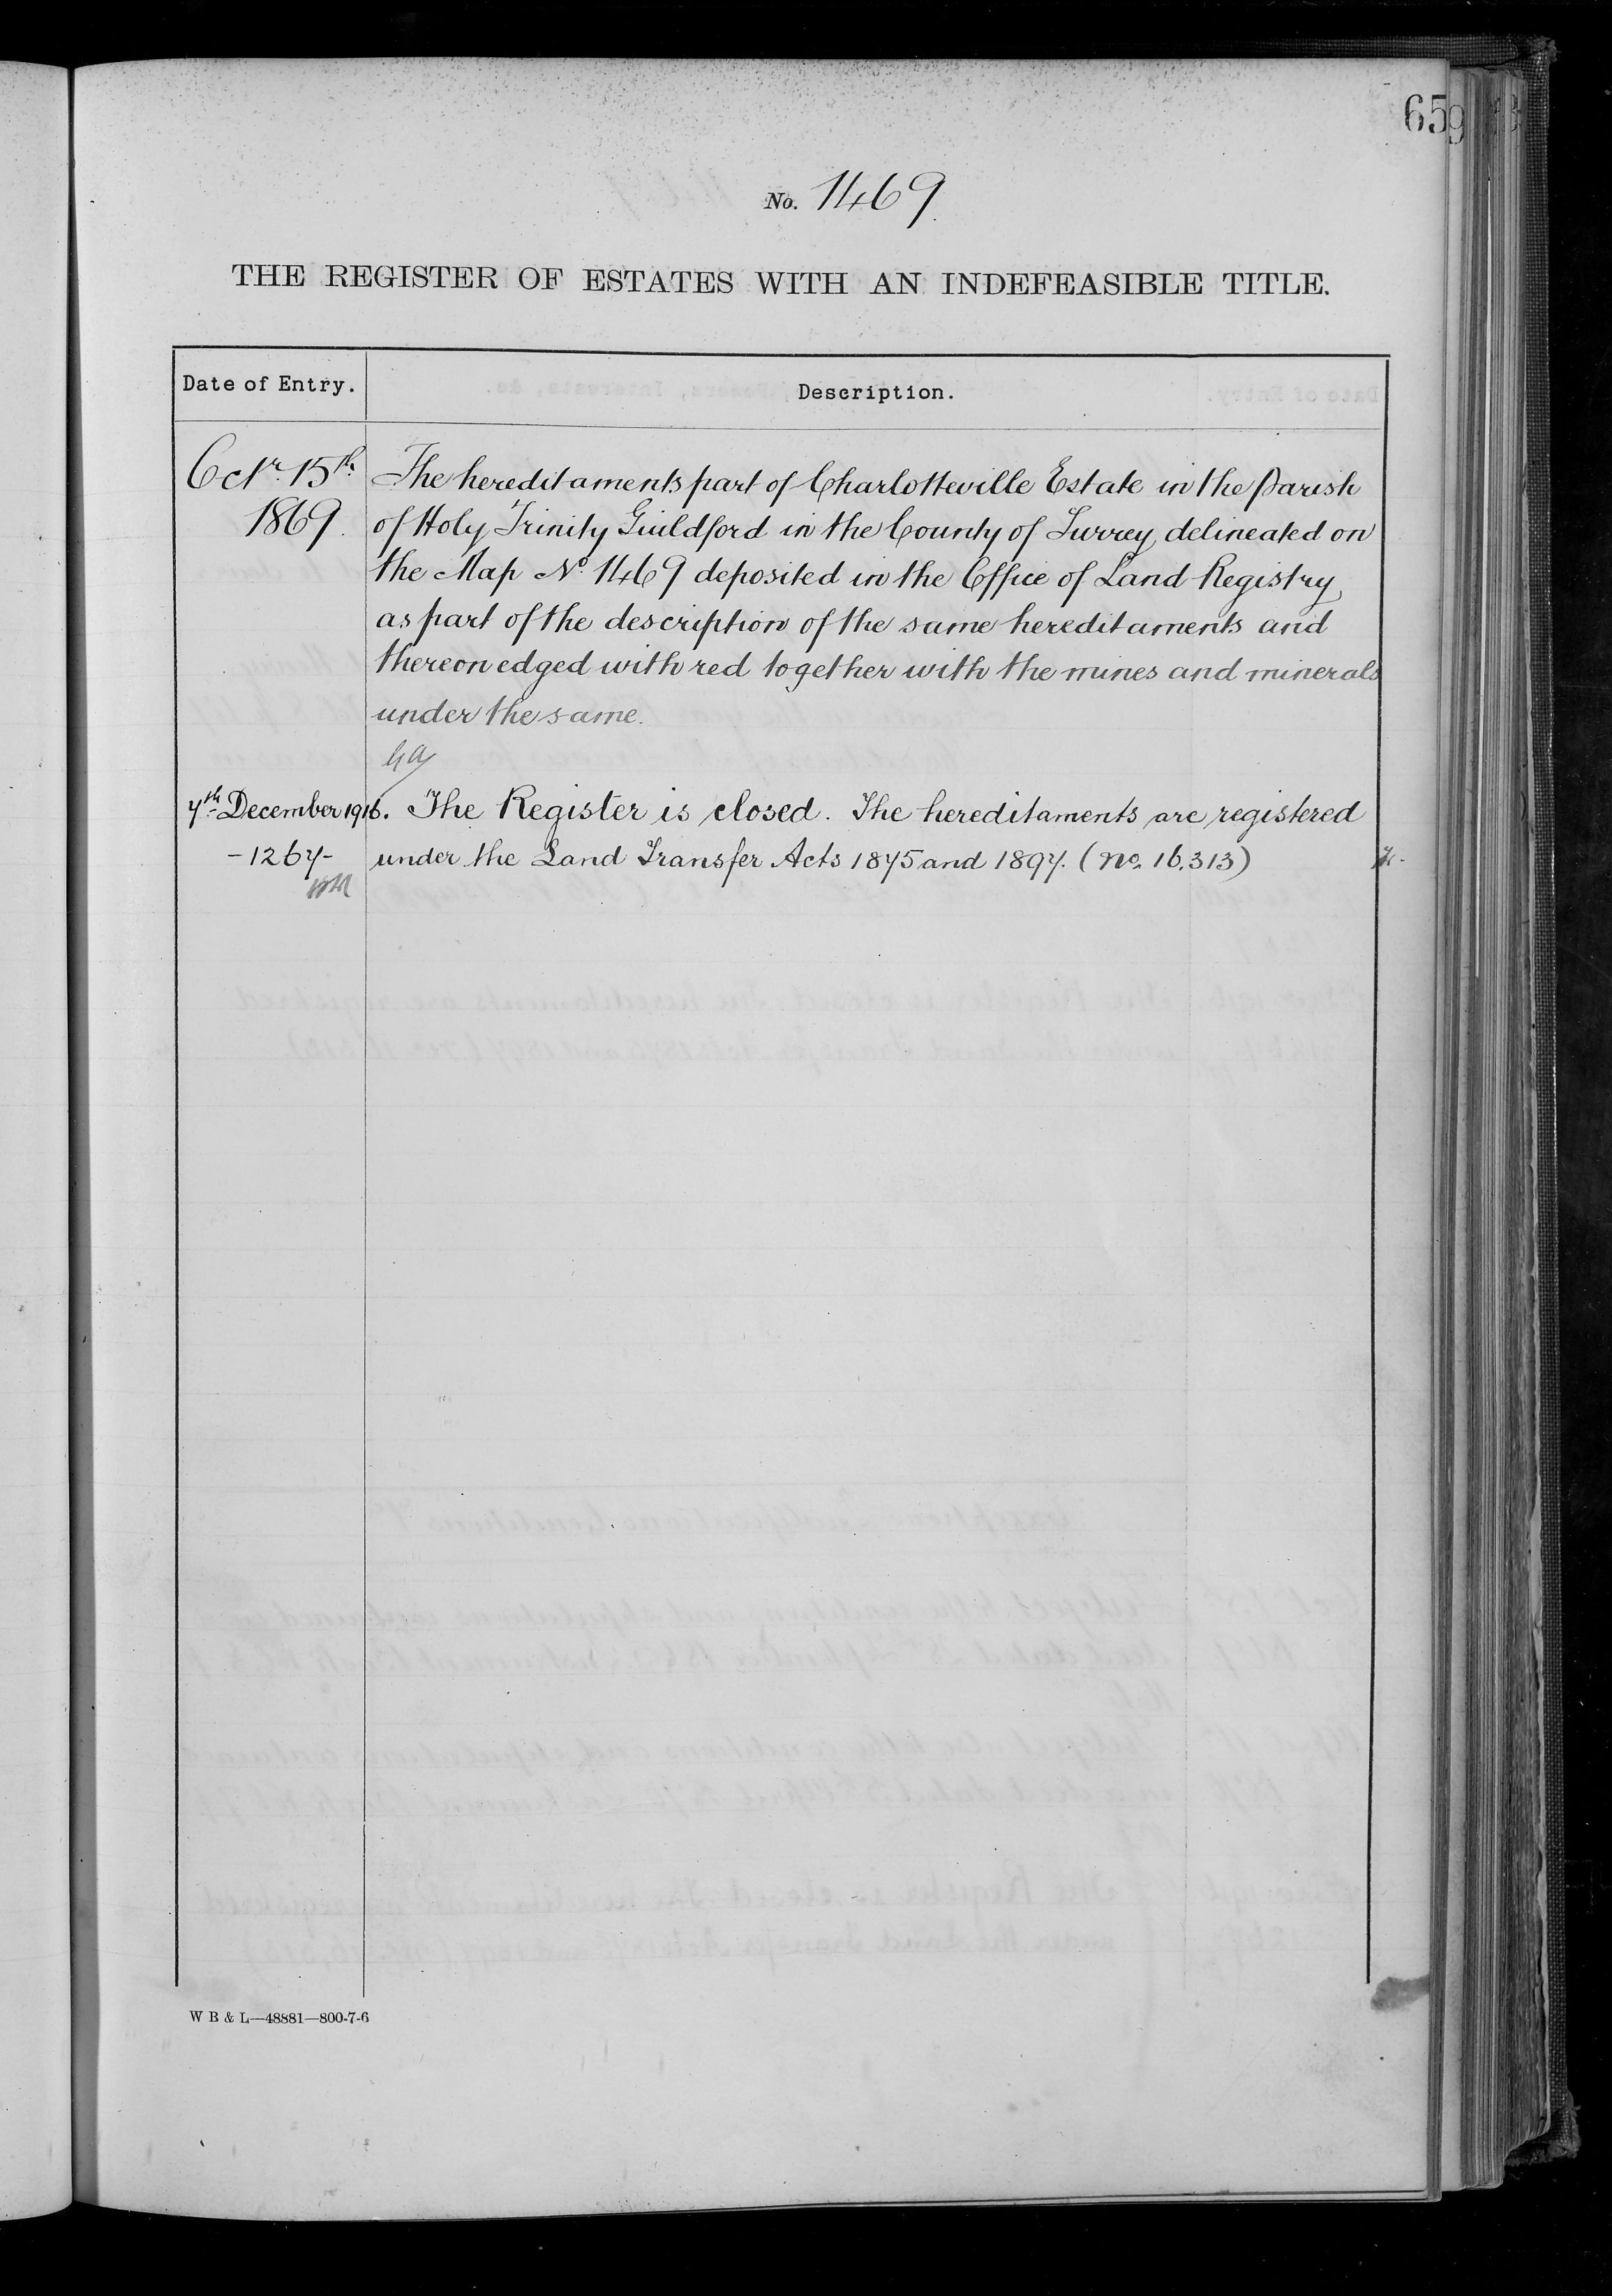 659
No. 1469.
THE REGISTER OF ESTATES WITH AN INDEFEASIBLE TITLE.
Date of Entry.
Description.
Octr. 15th.
1869.
The hereditaments part of Charlotteville Estate in the Parish
of Holy Trinity Guildford in the County of Surrey delineated on
the Map No. 1469 deposited in the Office of Land Registry
as part of the description of the same hereditaments and
thereon edged with red together with the mines and minerals
under the same.
7th December 1916.
-1267-
The Register is closed. The hereditaments are registered
under the Land Transfer Acts 1875 and 1897. (No. 16,313)
W B & L—48881—800-7-6